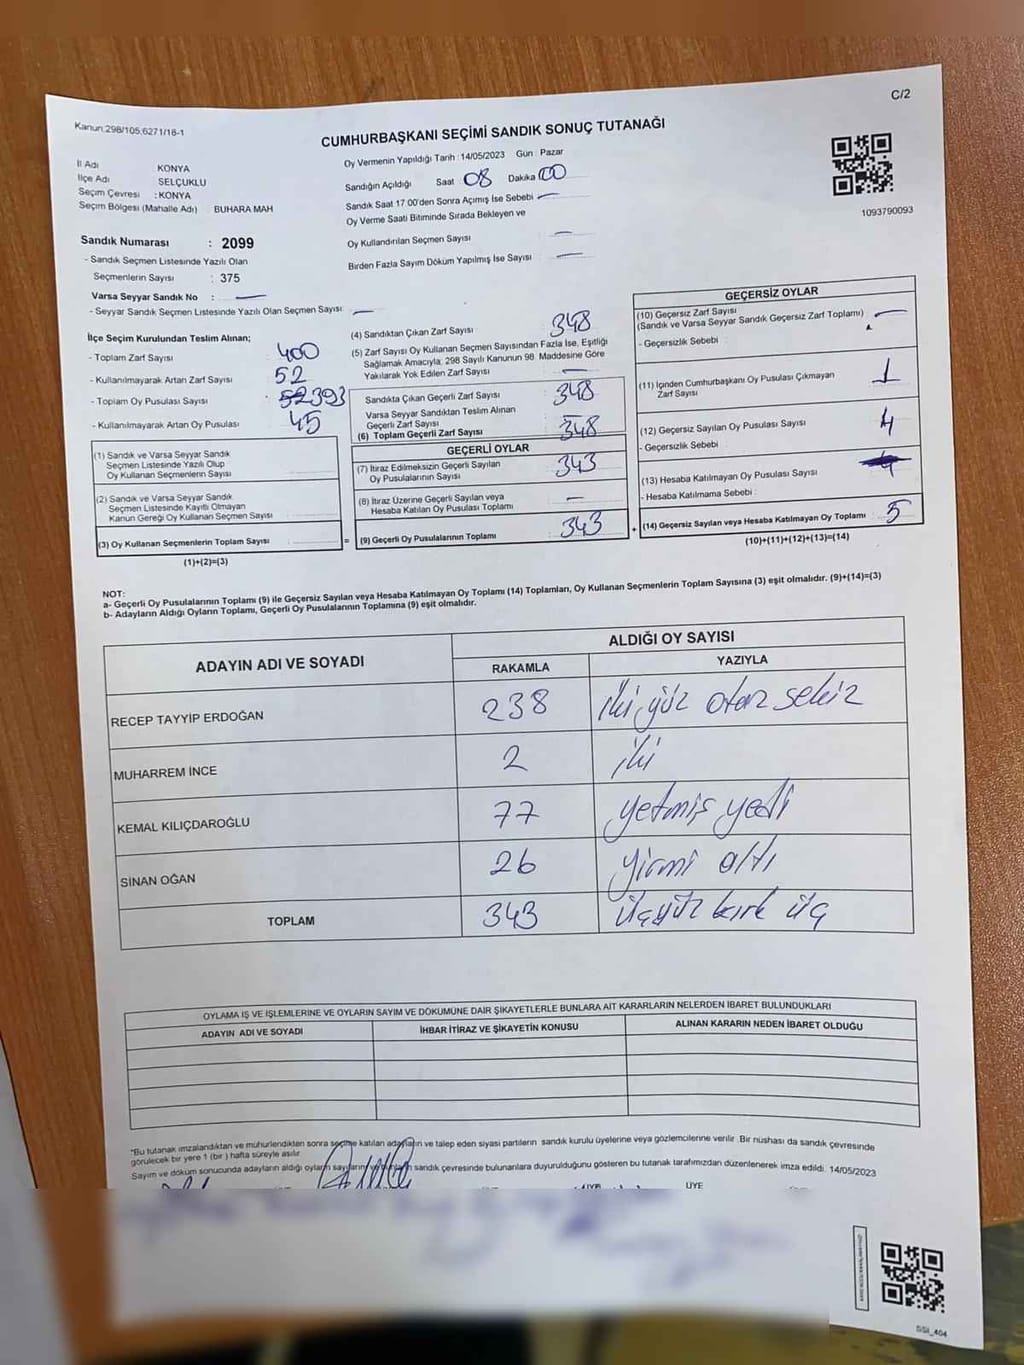 C/2
Kanun:298/105;6271/16-1
CUMHURBAŞKANI SEÇİMİ SANDIK SONUÇ TUTANAĞI
İl Adı KONYA
İlçe Adı SELÇUKLU
Seçim Çevresi : KONYA
Seçim Bölgesi (Mahalle Adı) BUHARA MAH
Sandık Numarası : 2099
- Sandık Seçmen Listesinde Yazılı Olan
Seçmenlerin Sayısı : 375
Varsa Seyyar Sandık No : —
- Seyyar Sandık Seçmen Listesinde Yazılı Olan Seçmen Sayısı: —
Oy Vermenin Yapıldığı Tarih : 14/05/2023 Gün : Pazar
Sandığın Açıldığı Saat 08 Dakika 00
Sandık Saat 17 00'den Sonra Açımış İse Sebebi —
Oy Verme Saati Bitiminde Sırada Bekleyen ve
Oy Kullandırılan Seçmen Sayısı —
Birden Fazla Sayım Döküm Yapılmış İse Sayısı —
1093790093
İlçe Seçim Kurulundan Teslim Alınan;
- Toplam Zarf Sayısı : 400
- Kullanılmayarak Artan Zarf Sayısı : 52
- Toplam Oy Pusulası Sayısı : 393
- Kullanılmayarak Artan Oy Pusulası : 45
(1) Sandık ve Varsa Seyyar Sandık
Seçmen Listesinde Yazılı Olup
Oy Kullanan Seçmenlerin Sayısı
(2) Sandık ve Varsa Seyyar Sandık
Seçmen Listesinde Kayıtlı Olmayan
Kanun Gereği Oy Kullanan Seçmen Sayısı
(3) Oy Kullanan Seçmenlerin Toplam Sayısı =
(1)+(2)=(3)
(4) Sandıktan Çıkan Zarf Sayısı 348
(5) Zarf Sayısı Oy Kullanan Seçmen Sayısından Fazla İse, Eşitliği
Sağlamak Amacıyla; 298 Sayılı Kanunun 98. Maddesine Göre
Yakılarak Yok Edilen Zarf Sayısı —
Sandıkta Çıkan Geçerli Zarf Sayısı 348
Varsa Seyyar Sandıktan Teslim Alınan
Geçerli Zarf Sayısı —
(6) Toplam Geçerli Zarf Sayısı 348
GEÇERLİ OYLAR
(7) İtiraz Edilmeksizin Geçerli Sayılan
Oy Pusulalarının Sayısı 343
(8) İtiraz Üzerine Geçerli Sayılan veya
Hesaba Katılan Oy Pusulası Toplamı —
(9) Geçerli Oy Pusulalarının Toplamı 343 +
GEÇERSİZ OYLAR
(10) Geçersiz Zarf Sayısı
(Sandık ve Varsa Seyyar Sandık Geçersiz Zarf Toplamı) —
- Geçersizlik Sebebi :
(11) İçinden Cumhurbaşkanı Oy Pusulası Çıkmayan
Zarf Sayısı 1
(12) Geçersiz Sayılan Oy Pusulası Sayısı 4
- Geçersizlik Sebebi :
(13) Hesaba Katılmayan Oy Pusulası Sayısı
- Hesaba Katılmama Sebebi :
(14) Geçersiz Sayılan veya Hesaba Katılmayan Oy Toplamı 5
(10)+(11)+(12)+(13)=(14)
NOT:
a- Geçerli Oy Pusulalarının Toplamı (9) ile Geçersiz Sayılan veya Hesaba Katılmayan Oy Toplamı (14) Toplamları, Oy Kullanan Seçmenlerin Toplam Sayısına (3) eşit olmalıdır. (9)+(14)=(3)
b- Adayların Aldığı Oyların Toplamı, Geçerli Oy Pusulalarının Toplamına (9) eşit olmalıdır.
ADAYIN ADI VE SOYADI ALDIĞI OY SAYISI
RAKAMLA YAZIYLA
RECEP TAYYİP ERDOĞAN 238 iki yüz otuz sekiz
MUHARREM İNCE 2 iki
KEMAL KILIÇDAROĞLU 77 yetmiş yedi
SİNAN OĞAN 26 yirmi altı
TOPLAM 343 üçyüz kırk üç
OYLAMA İŞ VE İŞLEMLERİNE VE OYLARIN SAYIM VE DÖKÜMÜNE DAİR ŞİKAYETLERLE BUNLARA AİT KARARLARIN NELERDEN İBARET BULUNDUKLARI
ADAYIN ADI VE SOYADI İHBAR İTİRAZ VE ŞİKAYETİN KONUSU ALINAN KARARIN NEDEN İBARET OLDUĞU
*Bu tutanak imzalandıktan ve mühürlendikten sonra seçime katılan adayların ve talep eden siyasi partilerin sandık kurulu üyelerine veya gözlemcilerine verilir. Bir nüshası da sandık çevresinde
görülecek bir yere 1 (bir) hafta süreyle asılır.
Sayım ve döküm sonucunda adayların aldığı oyların sayılarını sandık çevresinde bulunanlara duyurulduğunu gösteren bu tutanak tarafımızdan düzenlenerek imza edildi. 14/05/2023
ÜYE
SSİ_404